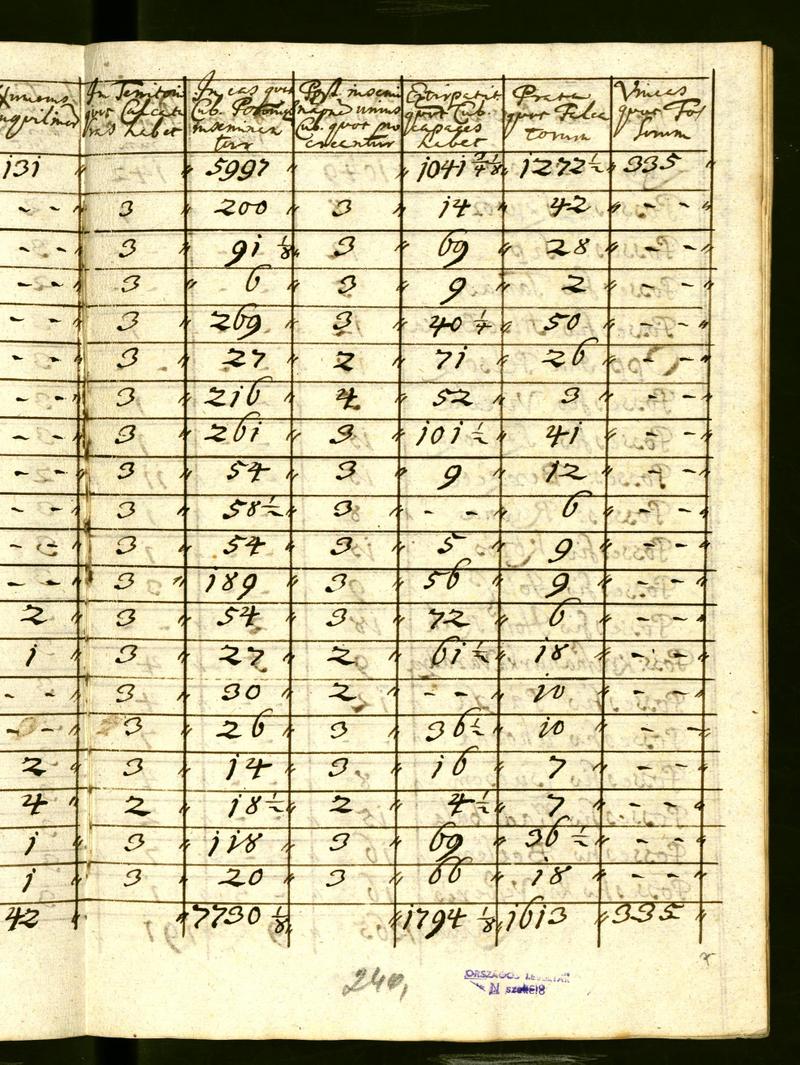 In Territorio In eas quot Post insemi Extirpatit Prata Vineas
quot Calcat Cub. Poson nat. unius quot Cub. quot Falca quot Fos
habet insemina Cub. quot pro capaces torum sorum
tur creentur habet
131 " " 5997 " " 1041 2/4 1/8 " 1272 1/2 " 335 "
- - " 3 " 200 " 3 " 14 " 42 " - - "
- - " 3 " 91 1/8 " 3 " 69 " 28 " - - "
- - " 3 " 6 " 3 " 9 " 2 " - - "
- - " 3 " 269 " 3 " 40 1/4 " 50 " - - "
- - " 3 " 27 " 2 " 71 " 26 " - - "
- - " 3 " 216 " 4 " 52 " 3 " - - "
- - " 3 " 261 " 3 " 101 1/2 " 41 " - - "
- - " 3 " 54 " 3 " 9 " 12 " - - "
- - " 3 " 58 1/2 " 3 " - - " 6 " - - "
- - " 3 " 54 " 3 " 5 " 9 " - - "
- - " 3 " 189 " 3 " 56 " 9 " - - "
2 " 3 " 54 " 3 " 72 " 6 " - - "
1 " 3 " 27 " 2 " 61 1/2 " 18 " - - "
- - " 3 " 30 " 2 " - - " 10 " - - "
- - " 3 " 26 " 3 " 36 1/2 " 10 " - - "
2 " 3 " 14 " 3 " 16 " 7 " - - "
4 " 2 " 18 1/2 " 2 " 4 1/2 " 7 " - - "
1 " 3 " 118 " 3 " 69 " 36 1/2 " - - "
1 " 3 " 20 " 3 " 66 " 18 " - - "
42 " " 7730 1/8 " " 1794 1/8 " 1613 " 335 "
240,
ORSZÁGOS LEVÉLTÁR
N szekció